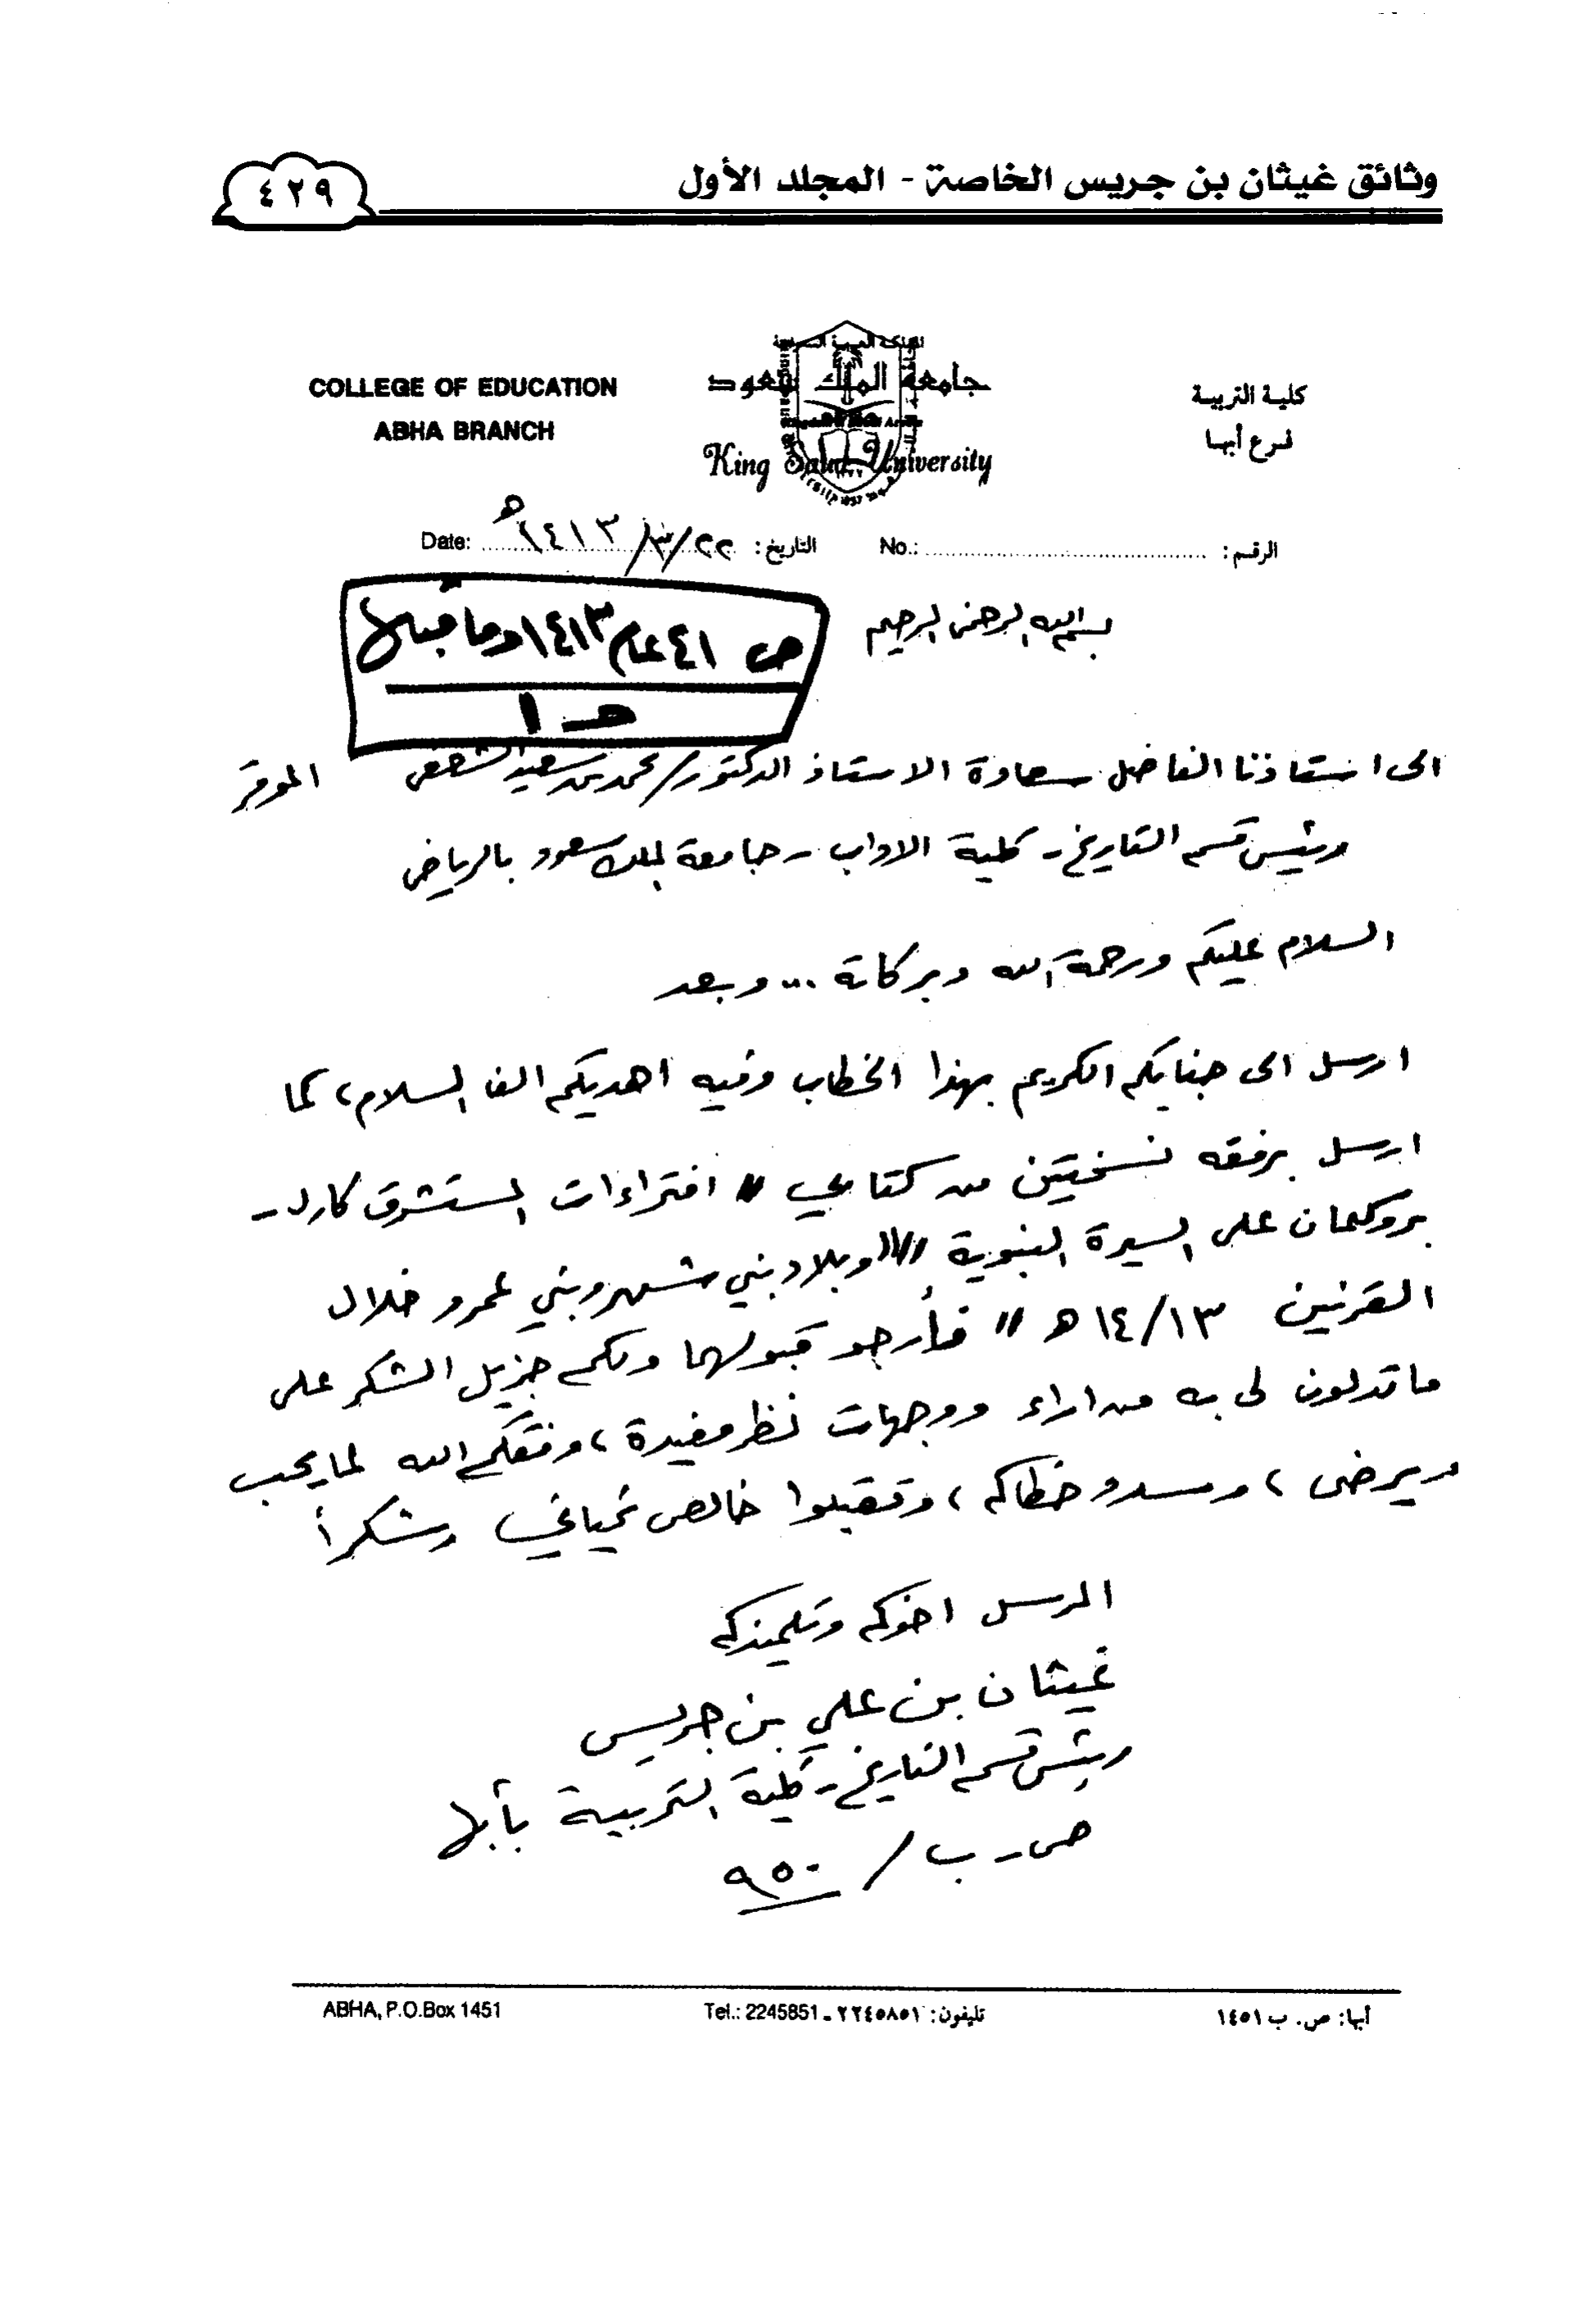 وثائق غيثان بن جريس الخاصة - المجلد الأول
٤٢٩
كلية التربية
فرع أبها
جامعة الملك سعود
King Saud University
COLLEGE OF EDUCATION
ABHA BRANCH
الرقم: No.:
التاريخ: ٢٢/٣/١٤١٣هـ Date:
بسم الله الرحمن الرحيم
ص ٤١ عام ١٤١٣ وما قبلها
الى استاذنا الفاضل سعادة الاستاذ الدكتور/ محمد بن سعيد الشعفي الموقر
رئيس قسم التاريخ - كلية الاداب - جامعة الملك سعود بالرياض
السلام عليكم ورحمة الله وبركاته ... وبعد
ارسل الى جنابكم الكريم بهذا الخطاب وفيه اهديكم الف السلام، كما
ارسل برفقه نسختين من كتابي " افتراءات المستشرق كارل -
بروكلمان على السيرة النبوية " " وبلاد بني شهر وبني عمرو خلال
القرنين ١٤/١٣ هـ " فأرجو قبولهما ولكم جزيل الشكر على
ما تدلون لى به من اراء ووجهات نظر مفيدة، وفقكم الله لما يحب
ويرضى، وسدد خطاكم، وتقبلوا خالص تحياتي وشكراً
المرسل اخوكم وتلميذكم
غيثان بن علي بن جريس
رئيس قسم التاريخ - كلية التربية بأبها
ص - ب / ٩٥٠
أبها: ص. ب ١٤٥١
تليفون: ٢٢٤٥٨٥١ - Tel.: 2245851
ABHA, P.O.Box 1451